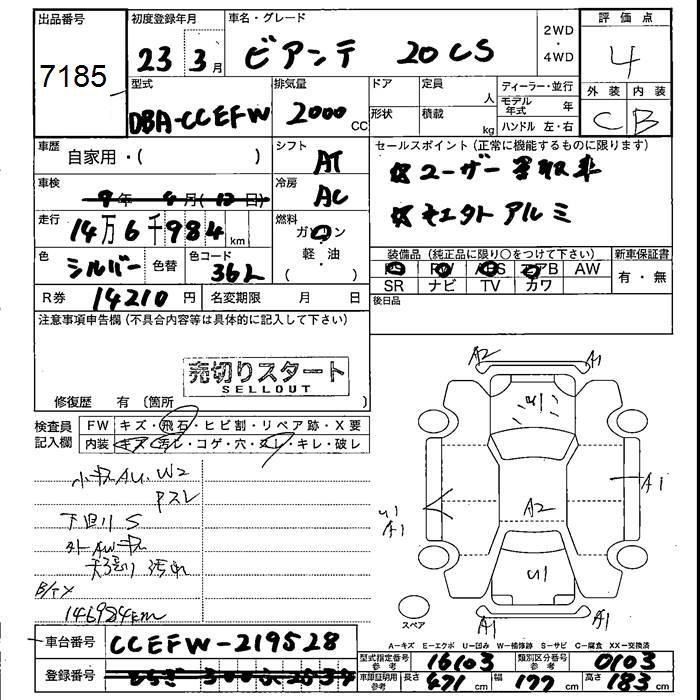 出品番号 初度登録年月 車名・グレード 2WD・4WD 評価点
7185 23年 3月 ビアンテ 20CS 4
型式 排気量 ドア 定員 人 ディーラー・並行 外装 内装
DBA-CCEFW 2000 CC 形状 積載 kg モデル年式 年 ハンドル 左・右 C B
車歴 自家用・( ) シフト AT セールスポイント (正常に機能するものに限ります)
車検 9年 9月(12日) 冷房 AC ☆ユーザー買取車
走行 14万6千984km 燃料 ガソリン 軽・油 ( ) ☆モエタトアルミ
色 シルバー 色替 色コード 36L 装備品 (純正品に限り○をつけて下さい) 新車保証書
PS PW ABS エアB AW 有・無
SR ナビ TV カワ
R券 14210円 名変期限 月 日 後日品
注意事項申告欄 (不具合内容等は具体的に記入して下さい)
売切りスタート
SELLOUT
修復歴 有 (箇所
検査員記入欄 FW キズ・飛石・ヒビ割・リペア跡・X要
内装 キズ・汚レ・コゲ・穴・スレ・キレ・破レ
小キズAU、W2
Pスレ
下回リS
外AWキズ
天張リ汚れ
B/タメ
146984km
A2 A1
U1
A1
U1
A1
A2
U1
A1 A1
スペア
A-キズ E-エクボ U-凹み W-補修跡 S-サビ C-腐食 XX-交換済
車台番号 CCEFW-219528
型式指定番号 参考 16103 類別区分番号 参考 0103
登録番号 300
車庫証明用 参考 長さ 471cm 幅 177cm 高さ 183cm